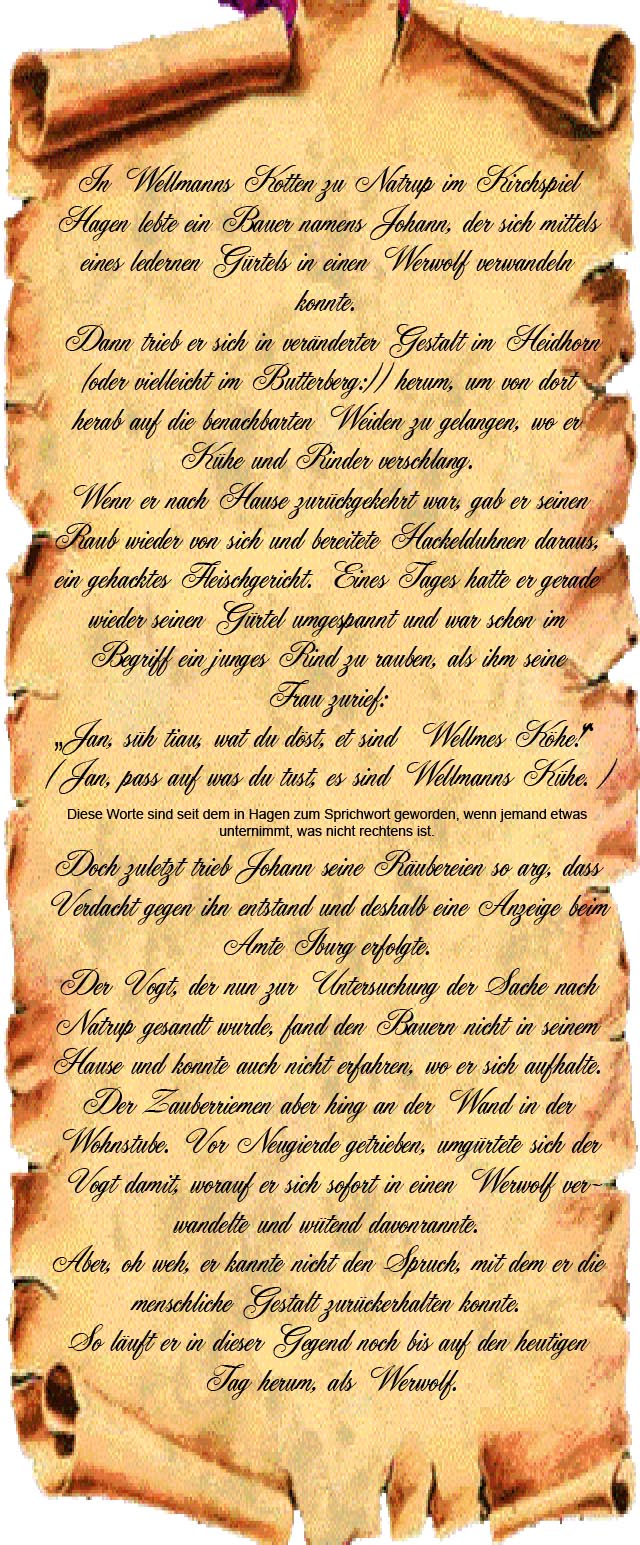 In Wellmanns Kotten zu Natrup im Kirchspiel
Hagen lebte ein Bauer namens Johann, der sich mittels
eines ledernen Gürtels in einen Werwolf verwandeln
konnte.
Dann trieb er sich in veränderter Gestalt im Heidhorn
(oder vielleicht im Butterberg:)) herum, um von dort
herab auf die benachbarten Weiden zu gelangen, wo er
Kühe und Rinder verschlang.
Wenn er nach Hause zurückgekehrt war, gab er seinen
Raub wieder von sich und bereitete Hackelduhnen daraus,
ein gehacktes Fleischgericht. Eines Tages hatte er gerade
wieder seinen Gürtel umgespannt und war schon im
Begriff ein junges Rind zu rauben, als ihm seine
Frau zurief:
„Jan, süh tiau, wat du döst, et sind Wellmes Köhe!“
( Jan, pass auf was du tust, es sind Wellmanns Kühe. )
Diese Worte sind seit dem in Hagen zum Sprichwort geworden, wenn jemand etwas
unternimmt, was nicht rechtens ist.
Doch zuletzt trieb Johann seine Räubereien so arg, dass
Verdacht gegen ihn entstand und deshalb eine Anzeige beim
Amte Iburg erfolgte.
Der Vogt, der nun zur Untersuchung der Sache nach
Natrup gesandt wurde, fand den Bauern nicht in seinem
Hause und konnte auch nicht erfahren, wo er sich aufhalte.
Der Zauberriemen aber hing an der Wand in der
Wohnstube. Vor Neugierde getrieben, umgürtete sich der
Vogt damit, worauf er sich sofort in einen Werwolf ver-
wandelte und wütend davonrannte.
Aber, oh weh, er kannte nicht den Spruch, mit dem er die
menschliche Gestalt zurückerhalten konnte.
So läuft er in dieser Gegend noch bis auf den heutigen
Tag herum, als Werwolf.